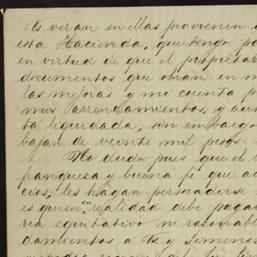 Us veran en ellas provienen d
esta Hacienda, que tengo po
en virtud de que el propietar
documentos que obran en m
las mejoras y mi cuenta p
mos arrendamientos, y aun
ta liquidada, sin embargo
bajan de veinte mil pesos.
No dudo pues que el
franqueza y buena fé que a
cios, les hagan persuadirse
es quien en realidad debe paga
ria equitativo ni razonabl
damientos á Us y Jimenes